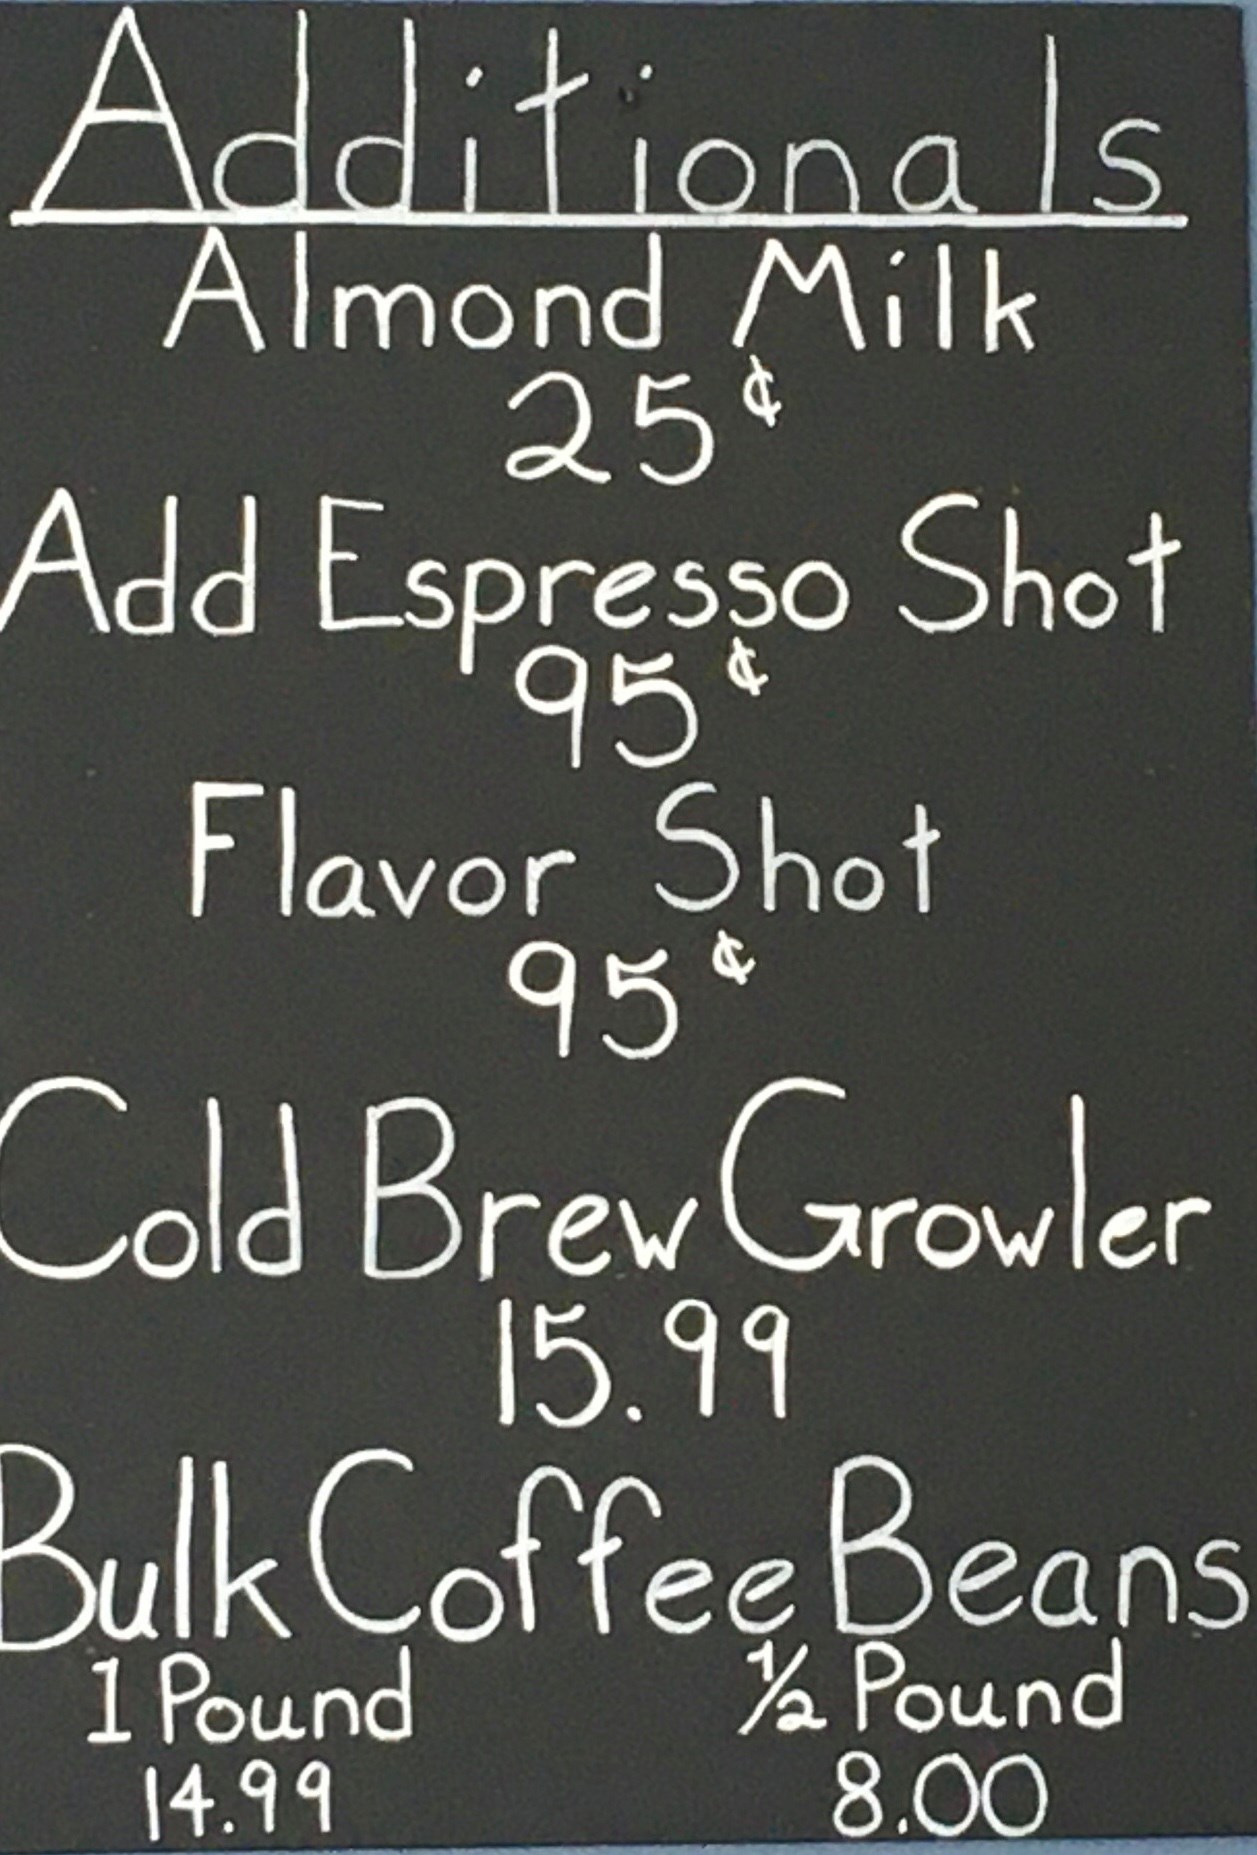 Additionals
Almond Milk
25¢
Add Espresso Shot
95¢
Flavor Shot
95¢
Cold Brew Growler
15.99
Bulk Coffee Beans
1 Pound ½ Pound
14.99 8.00